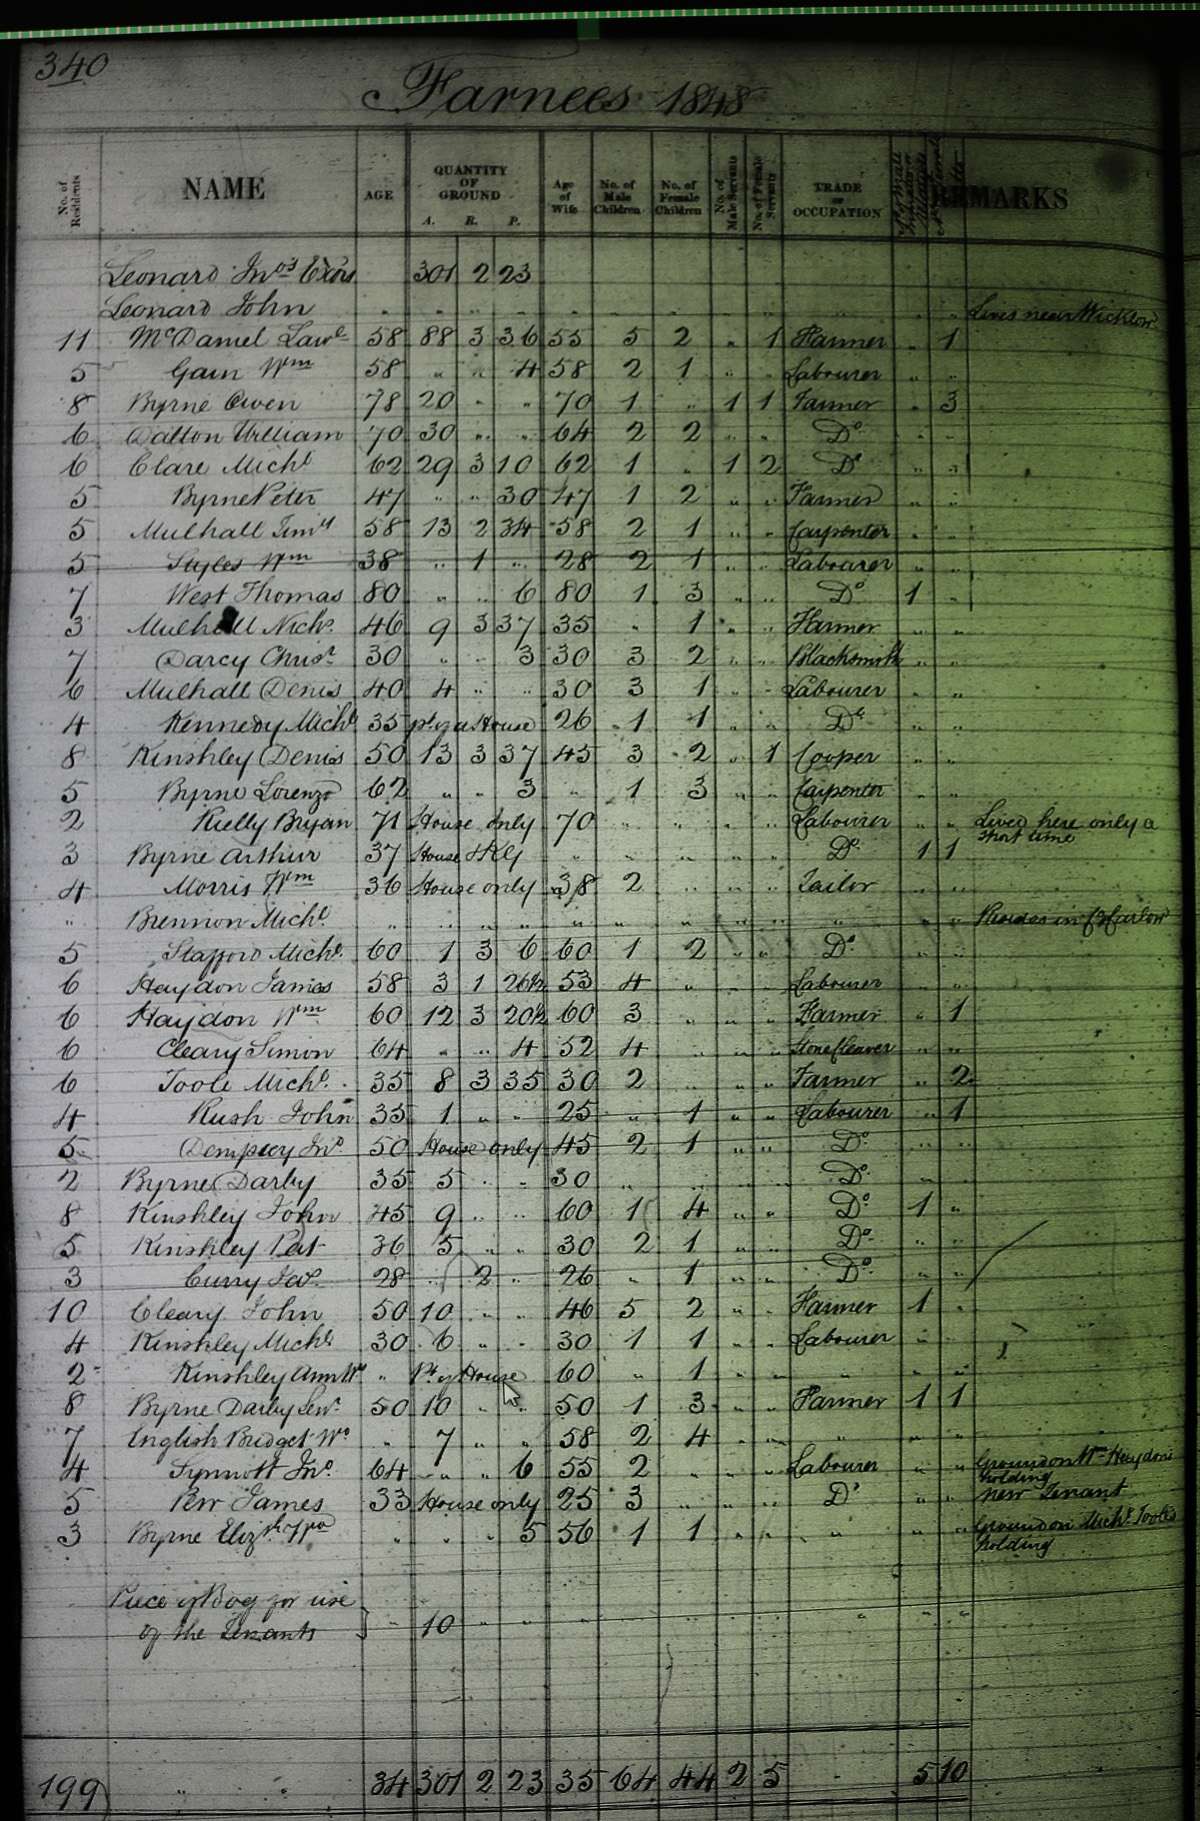 340
Farnees 1848
No. of Residents NAME AGE QUANTITY OF GROUND A. R. P. Age of Wife No. of Male Children No. of Female Children No. of Male Servants No. of Female Servants TRADE or OCCUPATION REMARKS
Leonard Jnos Exors 301 2 23
Leonard John " " " " " " " " " " " " Lives near Wicklow
11 McDaniel Lawe 58 88 3 36 55 5 2 " 1 Farmer " 1
5 Gain Wm 58 " " 4 58 2 1 " " Labourer " "
8 Byrne Owen 78 20 " " 70 1 " 1 1 Farmer " 3
6 Dalton William 70 30 " " 64 2 2 " " Do " "
6 Clare Michl 62 29 3 10 62 1 " 1 2 Do " "
5 Byrne Peter 47 " " 30 47 1 2 " " Farmer " "
5 Mulhall Jimy 58 13 2 34 58 2 1 " " Carpenter " "
5 Styles Wm 38 " 1 " 28 2 1 " " Labourer " "
7 West Thomas 80 " " 6 80 1 3 " " Do 1 "
3 Mulhall Nichs 46 9 3 37 35 " 1 " " Farmer " "
7 Darcy Christ 30 " " 3 30 3 2 " " Blacksmith " "
6 Mulhall Denis 40 4 " " 30 3 1 " " Labourer " "
4 Kennedy Michl 35 pt of a House 26 1 1 " " Do " "
8 Kinshley Denis 50 13 3 37 45 3 2 " 1 Cooper " "
5 Byrne Lorenzo 62 " " 3 " 1 3 " " Carpenter " "
2 Rielly Bryan 71 House only 70 " " " " Labourer " " Lived here only a
short time
3 Byrne Arthur 37 House " " " " " Do 1 1
4 Morris Wm 36 House only 38 2 " " " Tailor " "
" Brennon Michl " " " " " " " " " " " " Resides in Carlow
5 Stafford Michl 60 1 3 6 60 1 2 " " Do " "
6 Haydon James 58 3 1 26½ 53 4 " " " Labourer " "
6 Haydon Wm 60 12 3 20½ 60 3 " " " Farmer " 1
6 Cleary Simon 64 " " 4 52 4 " " " Stone Cleaver " "
6 Toole Michl 35 8 3 35 30 2 " " " Farmer " 2
4 Rush John 35 1 " " 25 " 1 " " Labourer " 1
5 Dempsey Jno 50 House only 45 2 1 " " Do " "
2 Byrne Darby 35 5 " " 30 " " " " Do " "
8 Kinshley John 45 9 " " 60 1 4 " " Do 1 "
5 Kinshley Pat 36 5 " " 30 2 1 " " Do " "
3 Curry Jas 28 " 2 " 26 " 1 " " Do " "
10 Cleary John 50 10 " " 46 5 2 " " Farmer 1 "
4 Kinshley Michl 30 6 " " 30 1 1 " " Labourer " "
2 Kinshley Ann Wo " Pt of House 60 " 1 " " " " "
8 Byrne Darby Senr 50 10 " " 50 1 3 " " Farmer 1 1
7 English Bridget Wo " 7 " " 58 2 4 " " " " "
4 Synnott Jno 64 " " 6 55 2 " " " Labourer " " Ground on Wm Haydon's
holding
5 Kerr James 33 House only 25 3 " " " Do " " new Tenant
3 Byrne Elizth Wo " " " 5 56 1 1 " " " " " Ground on Michl Toole's
holding
Piece of Bog for use
of the Tenants } " 10 " " " " " " " " " "
199 " " 34 301 2 23 35 64 44 2 5 5 10